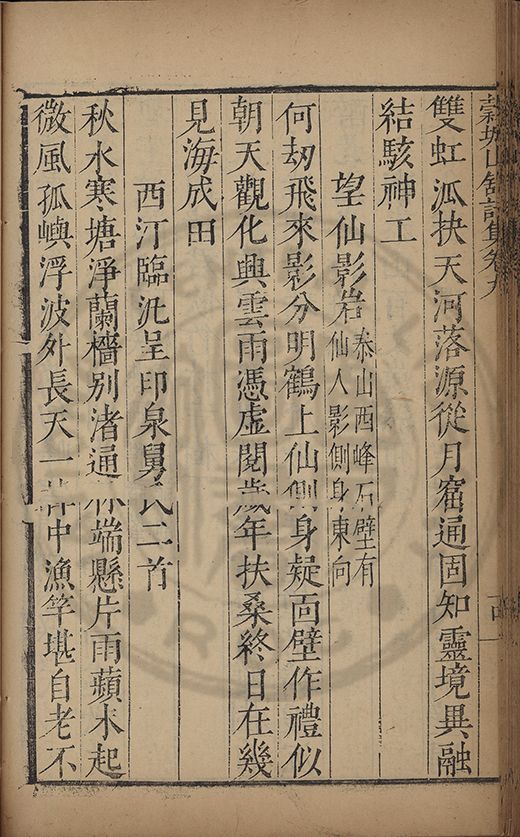 穀城山館詩集卷九
雙虹泒抉天河落源從月窟通固知靈境異融
結駭神工
望仙影岩
泰山西峰石壁有
仙人影側身東向
何刼飛來影分明鶴上仙側身疑面壁作禮似
朝天觀化興雲雨憑虛閱歲年扶桑終日在幾
見海成田
西汀臨泚呈印泉舅氏二首
秋水寒塘淨蘭檣别渚通 端懸片雨蘋末起
微風孤嶼浮波外長天一 中漁竿堪自老不